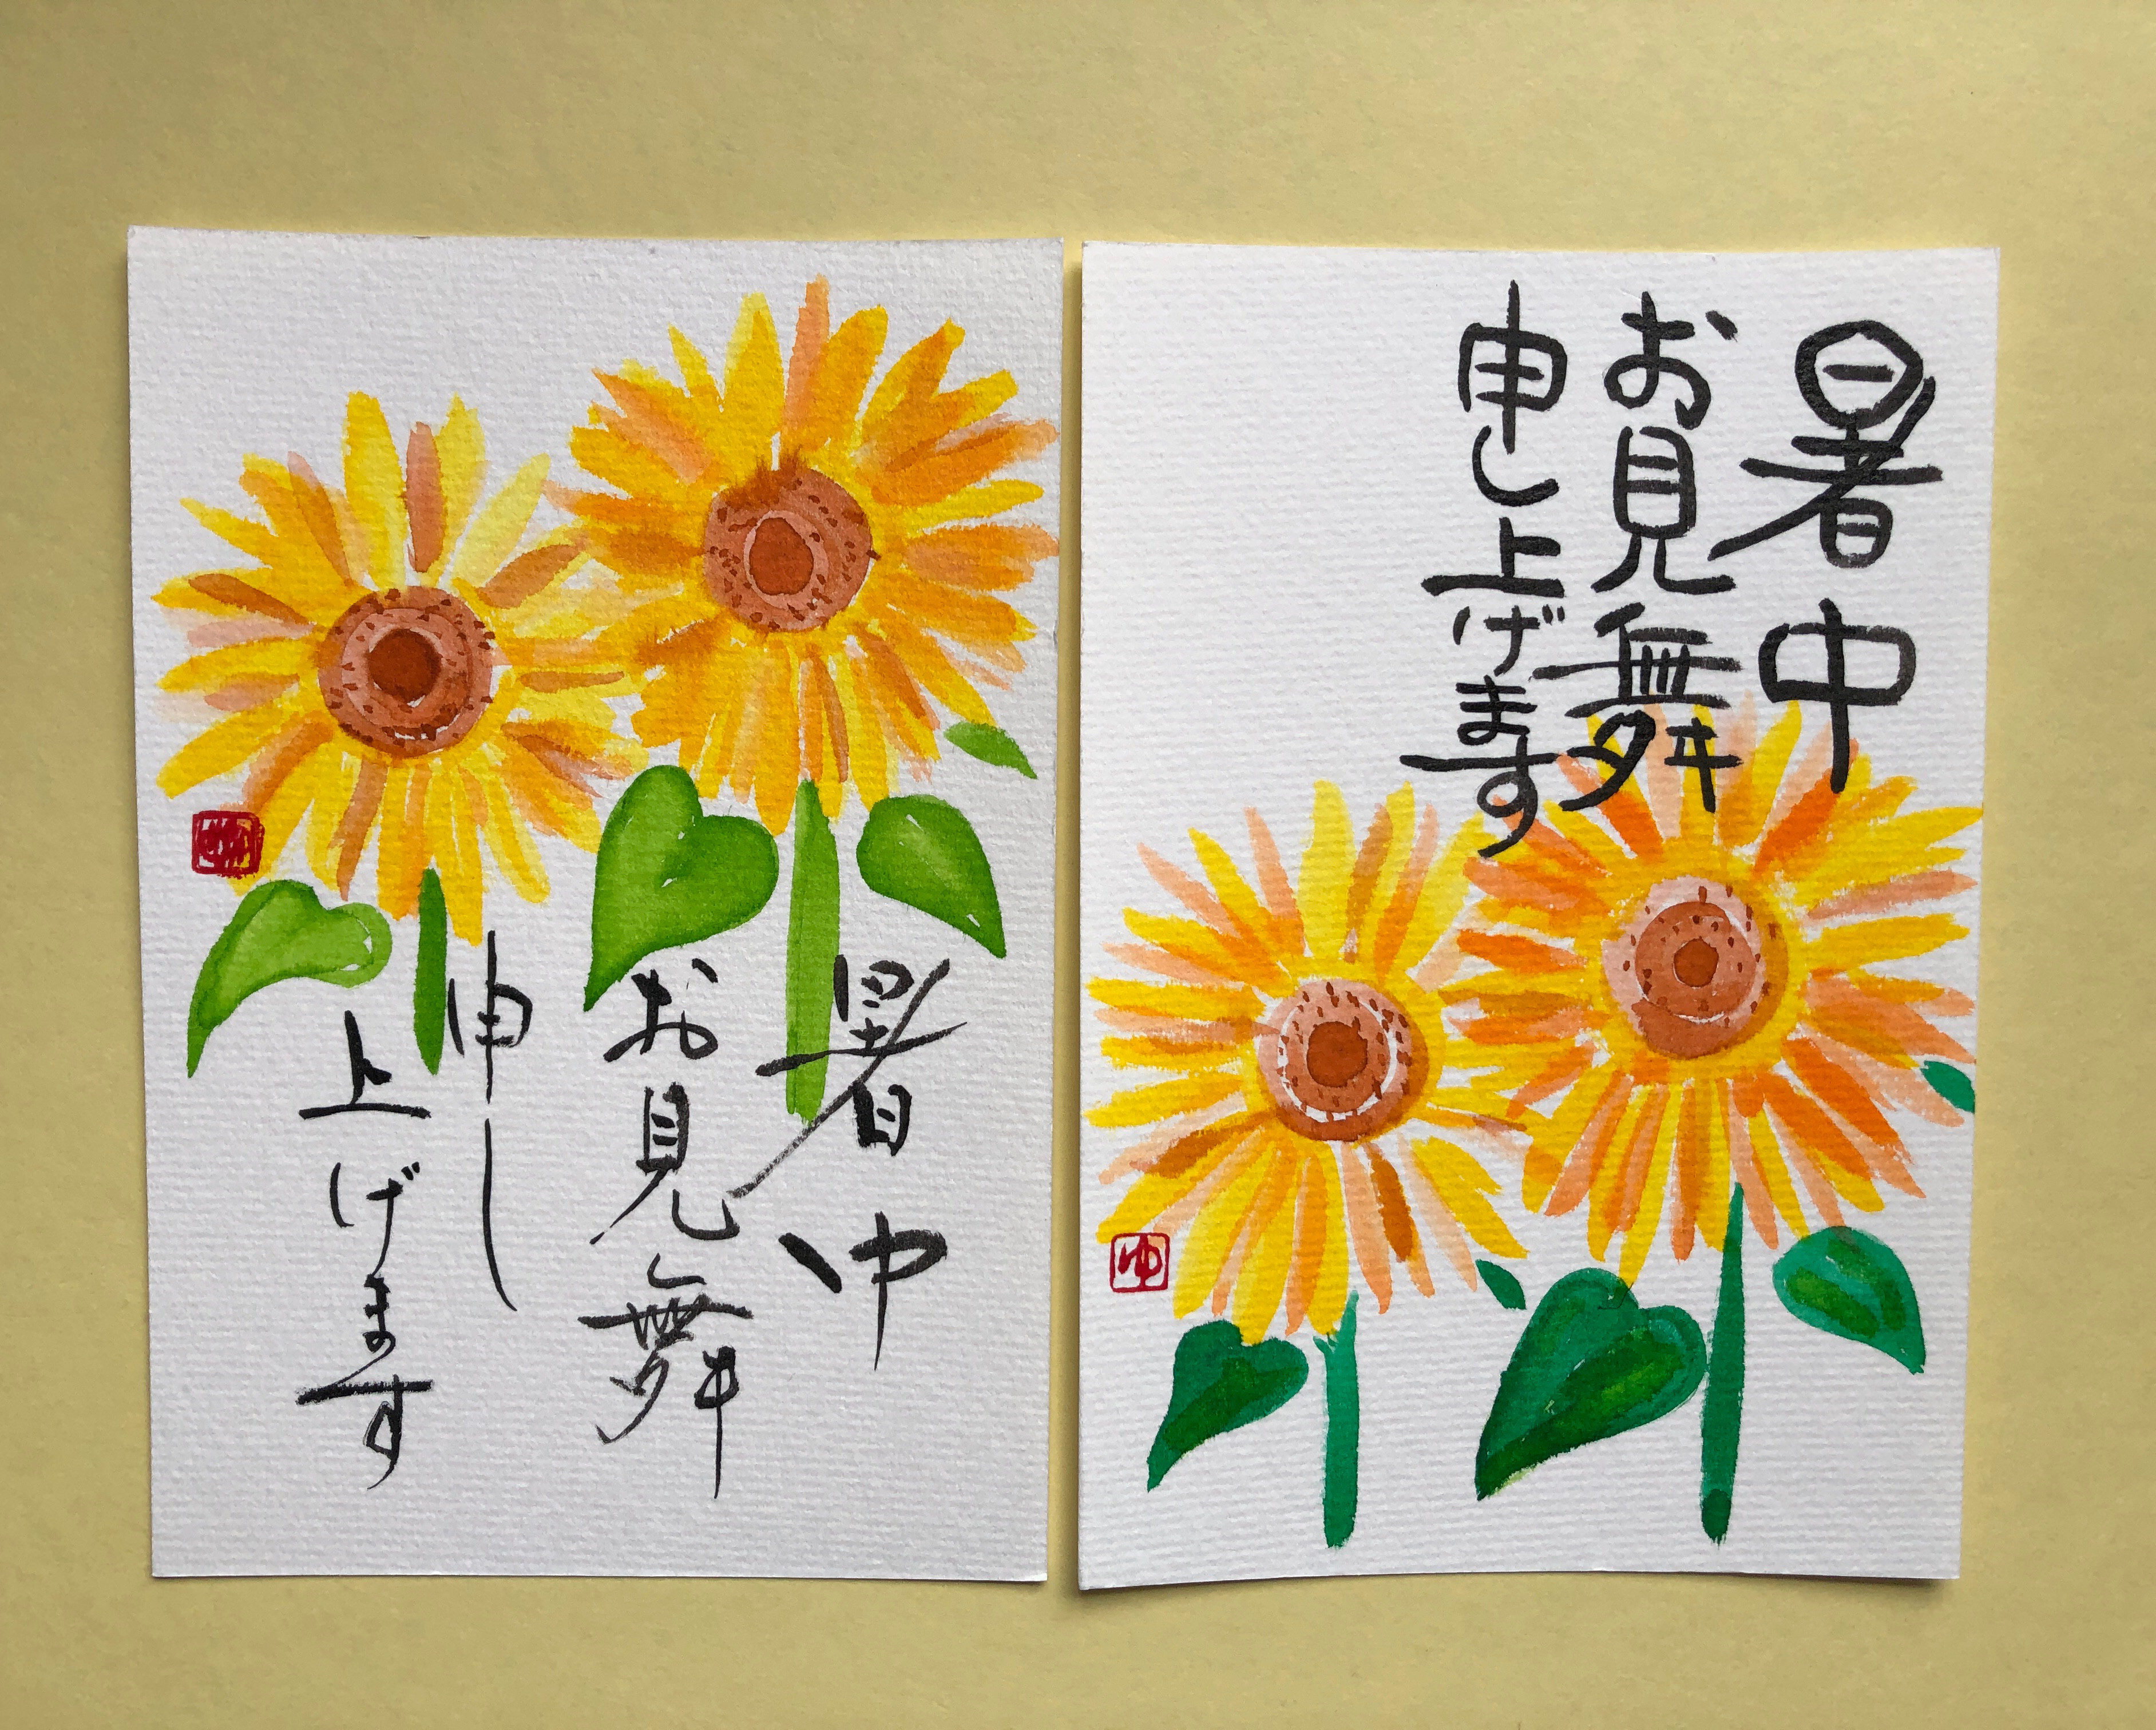 暑中
お見舞
申し
上げます
暑中
お見舞
申し上げます
ゆ